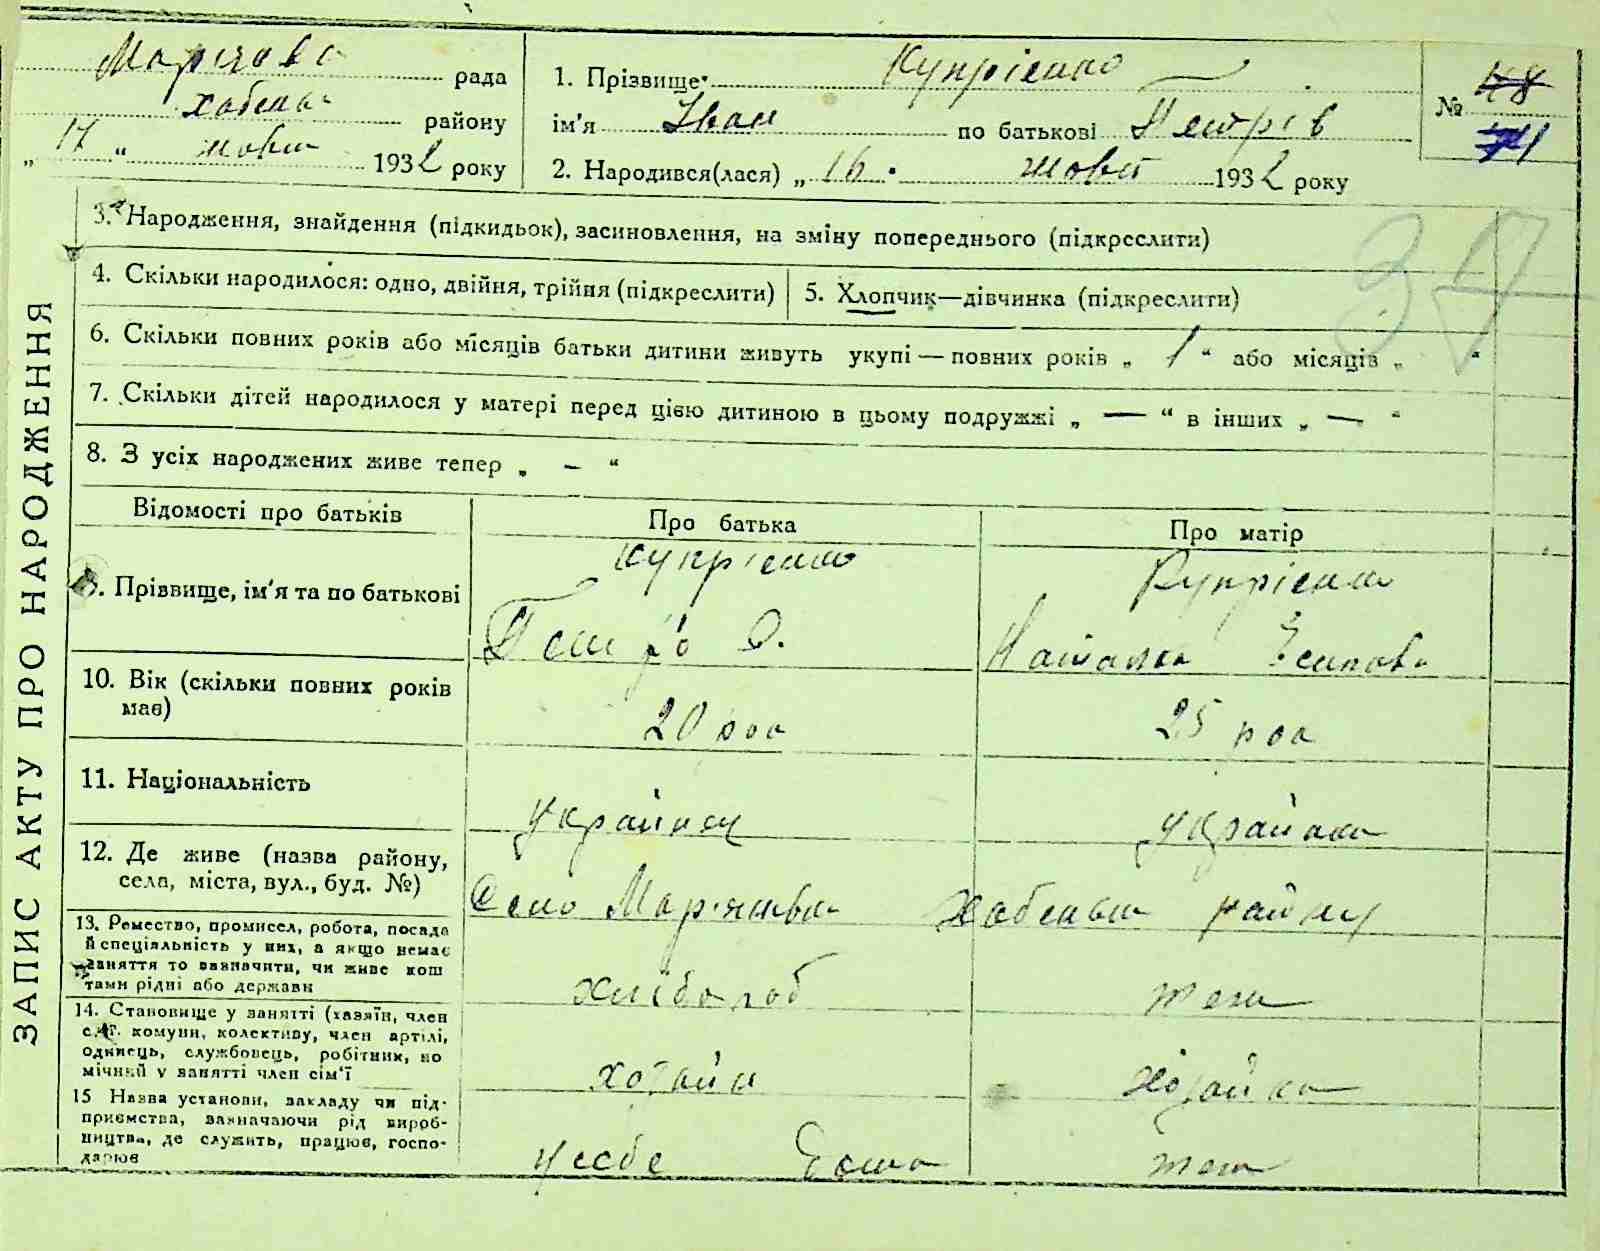 рада
хабень району
„ 17 “ жовт 1932 року
1. Прізвище Купрієнко
ім'я Іван по батькові Петрів
2. Народився(лася) „ 16 . жовт 1932 року
№ 48
71
37
ЗАПИС АКТУ ПРО НАРОДЖЕННЯ
3. Народження, знайдення (підкидьок), засиновлення, на зміну попереднього (підкреслити)
4. Скільки народилося: одно, двійня, трійня (підкреслити)
5. Хлопчик—дівчинка (підкреслити)
6. Скільки повних років або місяців батьки дитини живуть укупі — повних років „ 1 “ або місяців „ “
7. Скільки дітей народилося у матері перед цією дитиною в цьому подружжі „ — “ в інших „ — “
8. З усіх народжених живе тепер „ – “
Відомості про батьків
Про батька
Про матір
9. Прізвище, ім'я та по батькові
Купрієнко
Петро
Купрієнко
Наталка
10. Вік (скільки повних років має)
20 рок
25 рок
11. Національність
українец
українка
12. Де живе (назва району, села, міста, вул., буд. №)
Село Мар'янівка хабеньк району
13. Ремество, промисел, робота, посада
й спеціяльність у них, а якщо немає
заняття то зазначити, чи живе кош
тами рідні або держави
хлібороб
теж
14. Становище у занятті (хазяїн, член
с.-г. комуни, колективу, член артілі,
одинець, службовець, робітник, по
мічний у занятті член сім'ї
хозаїн
хозайка
15 Назва установи, закладу чи під-
приємства, зазначаючи рід вироб-
ництва, де служить, працює, госпо-
дарює
у себе дома
теж